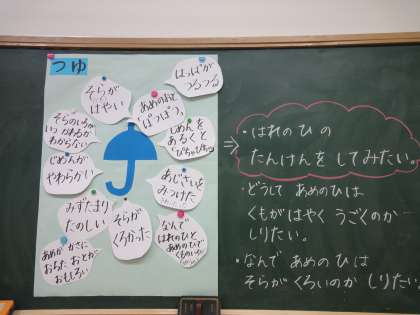 つゆ
はっぱが
つるつる
そらが
はやい
あめのおと
ぱつぱつ。
そらのいろが
いつかわるか
わからない
じめんを
あるくと
じめんが
やわらかい
あじさいを
みつけた
みずたまり
たのしい
そらが
くろかった
なんで
はれのひと
あめのひで
あめが かさに
おちた おとが
おもしろい
⇒
・はれのひの
たんけんを してみたい。
・どうして あめのひは
くもがはやく うごくのか
しりたい。
・なんで あめのひは
そらが くろいのか しりたい。